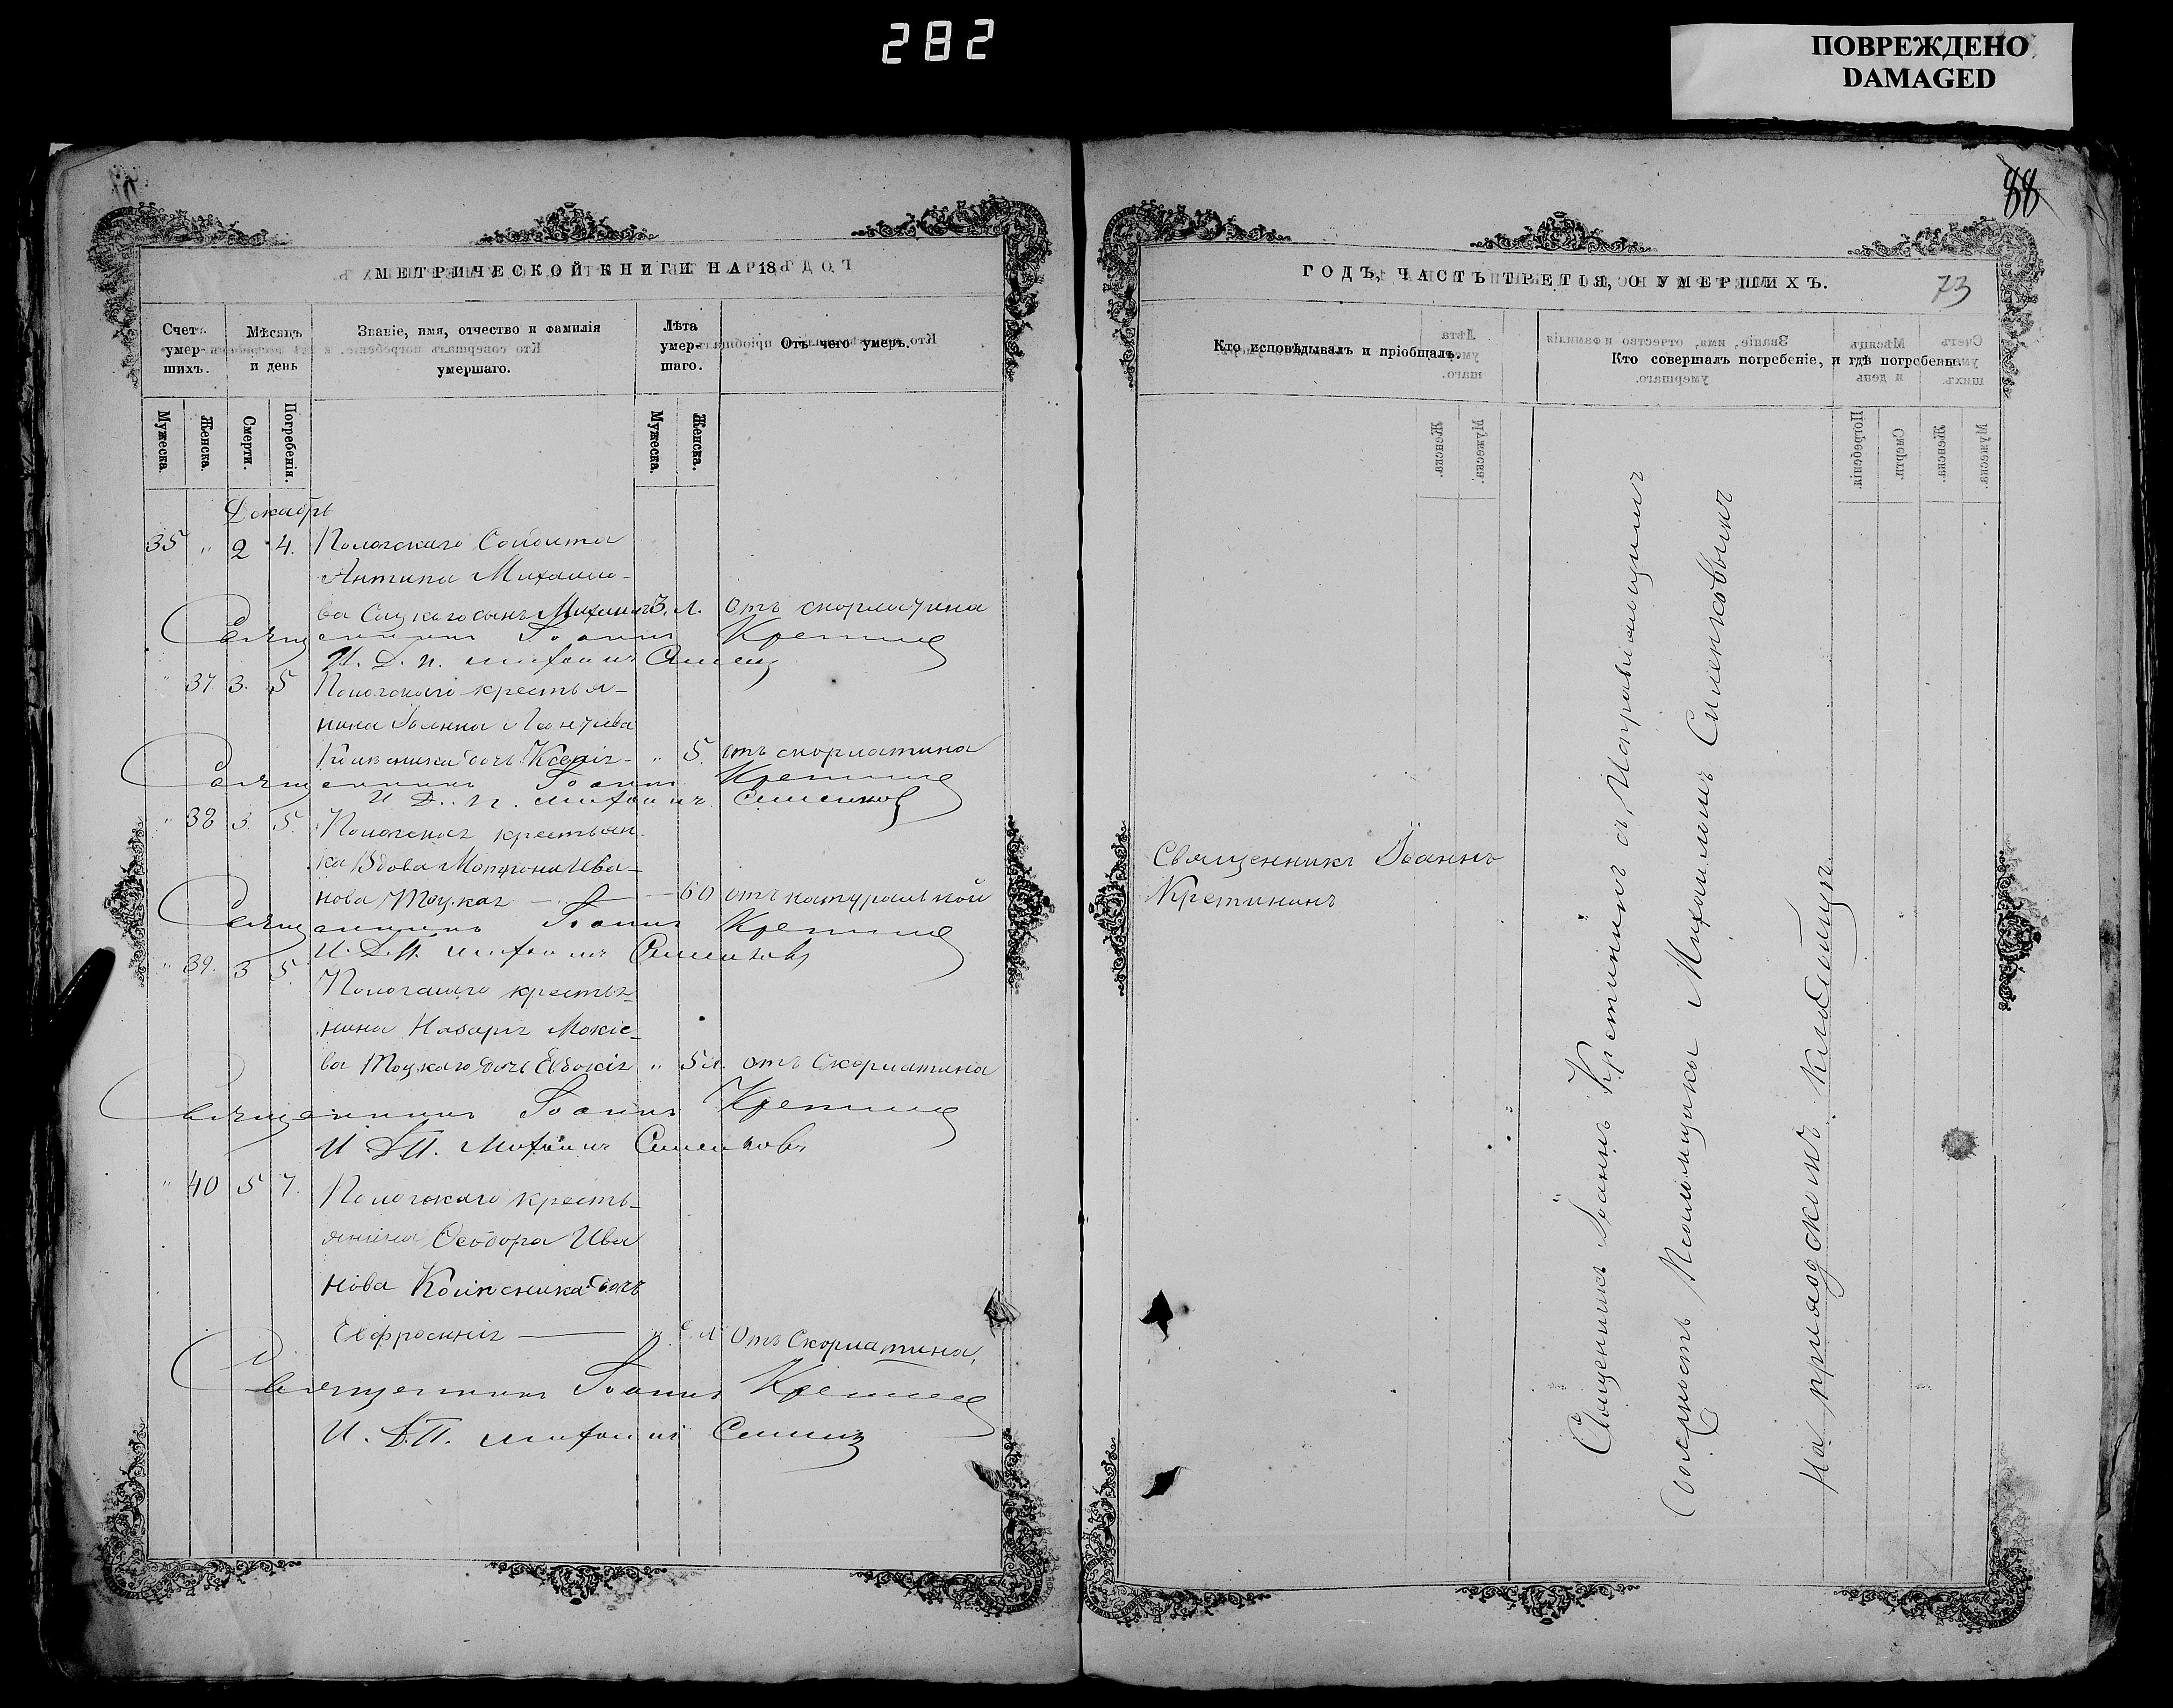 282
ПОВРЕЖДЕНО
DAMAGED
88
МЕТРИЧЕСКОЙ КНИГИ НА 18
Счетъ умер-шихъ.
Мѣсяцъ и день
Званіе, имя, отчество и фамилія умершаго.
Лѣта умер-шаго.
Отъ чего умеръ.
Мужеска.
Женска.
Смерти.
Погребенія.
Мужеска.
Женска.
Декабрь
35 " 2 4. Пологскаго Солдата
Антипа Михаило-
ва Сацкаго сынъ Михаилъ 3. л. отъ скорлатина
Священникъ Іоаннъ Кретинин
И. Д. п. Михаилъ
" 37. 3. 5 Пологскаго крестья-
нина Іоанна
дочь Ксенія " 5. отъ скорлатина
Священникъ Іоаннъ Кретинин
И. Д. п. Михаилъ Силенков
" 38 3. 5. Пологская крестьян-
ка Вдова Матрона Ива-
нова Тоцкая — 60 отъ натуральной
Священникъ Іоаннъ Кретинин
И. Д. П. Михаилъ Силенковъ
" 39. 3 5. Пологскаго крестья-
нина Назарія Мокіе-
ва Тоцкаго дочь Евдокія " 5 л. отъ Скорлатина
Священникъ Іоаннъ Кретинин
И Д П. Михаилъ Силенковъ
" 40 5 7. Пологскаго кресть-
янина Ѳеодора Ива
нова дочь
Евфросинія — " л отъ Скорлатина,
Священникъ Іоаннъ Кретинин
И. Д. П. Михаилъ
ГОДЪ, ЧАСТЬ ТРЕТІЯ, О УМЕРШИХЪ.
73
Кто исповѣдывалъ и пріобщалъ.
Кто совершалъ погребеніе, и гдѣ погребены.
Священникъ Іоаннъ
Кретининъ
Священникъ Іоаннъ Кретининъ съ Исправляющимъ
должность Псаломщика Михаиломъ Силенковымъ
На приходскомъ кладбищѣ